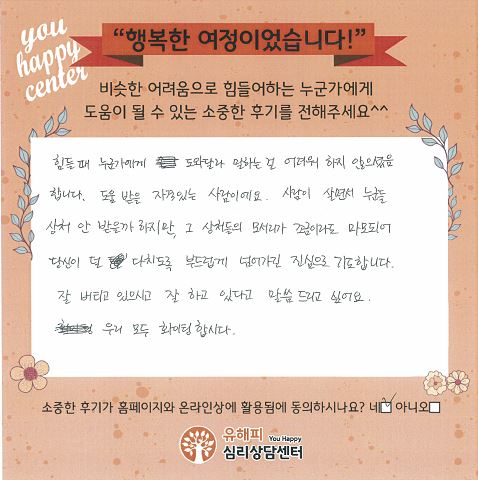 you
happy
center
“행복한 여정이었습니다!”
비슷한 어려움으로 힘들어하는 누군가에게
도움이 될 수 있는 소중한 후기를 전해주세요^^
힘들 때 누군가에게 도와달라 말하는 걸 어려워 하지 않으셨음
합니다. 도움 받을 자격있는 사람이에요. 사람이 살면서 누군들
상처 안 받을까 하지만, 그 상처들의 모서리가 조금이라도 마모되어
당신이 덜 다치도록 부드럽게 넘어가길 진심으로 기도합니다.
잘 버티고 있으시고 잘 하고 있다고 말씀 드리고 싶어요.
우리 모두 화이팅 합시다.
소중한 후기가 홈페이지와 온라인상에 활용됨에 동의하시나요? 네 아니오
유해피 You Happy
심리상담센터